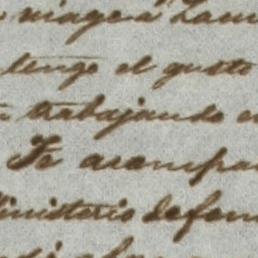 viage a
tengo el gusto
trabajando e
Te acompa
Ministerio de fom